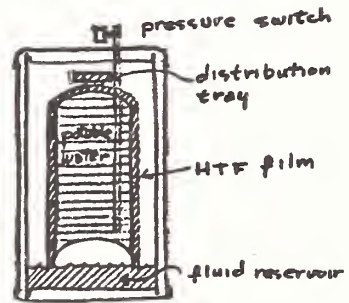 pressure switch
distribution
tray
potable
water
HTF film
fluid reservoir